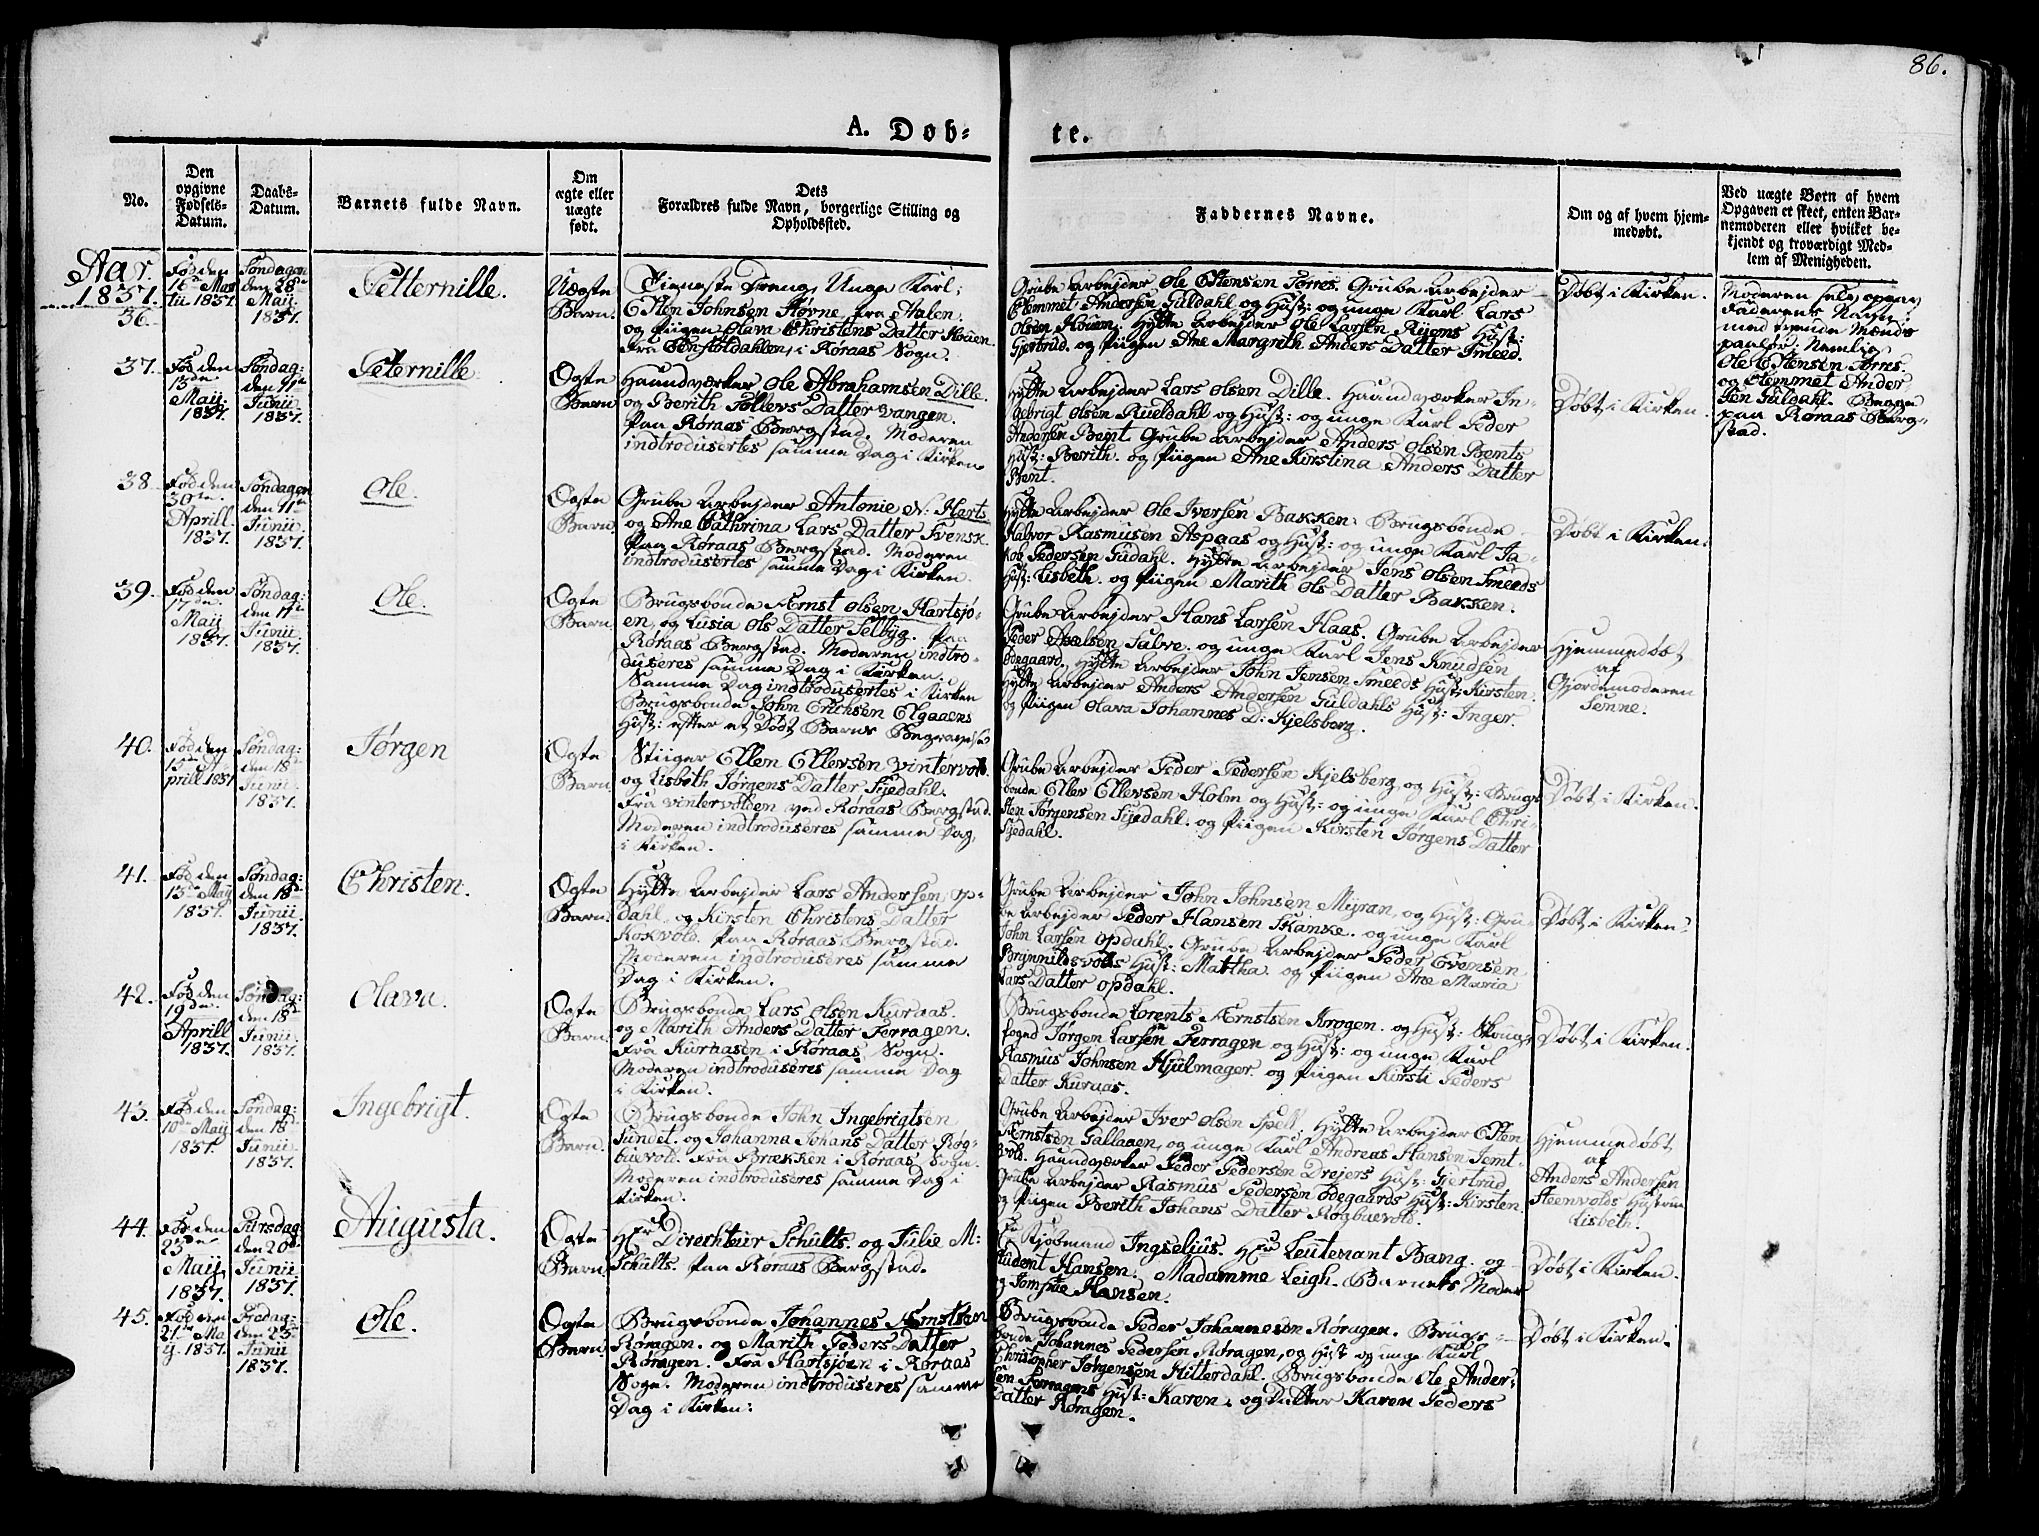 86.
A. Døb-
te.
No.
Den
opgivne
Fødsels-
Datum.
Daabs-
Datum.
Barnets fulde Navn.
Om
ægte eller
uægte
født.
Dets
Forældres fulde Navn, borgerlige Stilling og
Opholdssted.
Faddernes Navne.
Om og af hvem hjem-
medøbt.
Ved uægte Børn af hvem
Opgaven er skeet, enten Bar-
nemoderen eller hvilket be-
kjendt og troværdigt Med-
lem af Menigheden.
Aar
1837.
36.
Fød den
16de Mar
tii 1837.
Søndagen
den 28de
Maij
1837.
Petternille.
Uægte
Barn.
Tieneste Dreng, Unge Karl,
Esten Johnsen Høvne fra Aalen.
og Piigen Olava Christens Datter Houen.
fra Feristoldahlen, i Røraas Sogn.
Grube Arbejder Ole Estensen Torres. Grube Arbejder
Clemmet Andersen Guldahl og Hust: og unge Karl Lars
Olsen Houen. Hytte Arbejder Ole Larsen Ryens Hust:
Gjertrud. og Piigen Ane Margrith Anders Datter Smeed.
Døbt i Kirken.
Moderen selv opgav
Faderens Navn
med tvende Mænds
paahør. Nemlig
Ole Estensen Torres.
og Clemmet Ander
sen Guldahl. Begge
paa Røraas Berg-
stad.
37.
Fød den
13de
Maij
1837.
Søndag:
den 11te
Junii
1837.
Peternille
Ægte
Barn
Haandværker Ole Abrahamsen Dille.
og Berith Tollevs Datter Vangen.
paa Røraas Bergstad. Moderen
indtroduisertes samme Dag i Kirken
Hytte Arbejder Lars Olsen Dille. Haandværker In-
gebrigt Olsen Rueldahl og Hust: og unge Karl Peder
Andersen Bent. Grube Arbejder Anders Olsen Bents
Hust: Berith. og Piigen Ane Kirstina Anders Datter
Bent.
Døbt i Kirken.
38.
Fød den
30te
Aprill
1837.
Søndagen
den 11te
Junii
1837.
Ole.
Ægte
Barn.
Grube Arbejder Antonie N. Harts
og Ane Cathrina Lars Datter Svensk.
paa Røraas Bergstad. Moderen
indtroduisertes samme Dag i Kirken.
Hytte Arbejder Ole Iversen Bakken. Brugsbonde
Halvor Rasmusen Aspaas og Hust: og unge Karl Ja-
kob Pedersen Gudahl. Hytte Arbejder Jens Olsen Smeeds
Hust: Lisbeth. og Piigen Marith Ols Datter Bakken.
Døbt i Kirken.
39.
Fød den
17de
Maij
1837.
Søndag:
den 11te
Junii
1837.
Ole.
Ægte
Barn.
Brugsbonde Ærnst Olsen Hartsjø-
en, og Lusia Ols Datter Selbyg. paa
Røraas Bergstad. Moderen indtro-
duseres samme Dag i Kirken.
Samme Dag indtrodusertes i Kirken
Brugsbonde John Erichsen Elgaaens
Hust: efter et Dødt Barns Begravelse
Grube Arbejder Hans Larsen Haas. Grube Arbejder
Peder Axelsen Salve. og unge Karl Jens Knudsen
Ødegaard. Hytte Arbejder John Jensen Smeeds Hust: Kirsten.
Hytte Arbejder Anders Andersen Guldahls Hust: Inger.
og Piigen Olava Johannes D: Kjelsberg.
Hjemmedøbt
af
Gjordemoderen
Sønne.
40.
Fød den
15de A
prill 1837
Søndag:
den 18de
Junii
1837.
Jørgen
Ægte
Barn
Stiiger Ellen Ellevsen Vintervold.
og Lisbeth Jørgens Datter Sjedahl.
fra Vintervolden ved Røraas Bergstad.
Moderen indtroduseres samme Dag
i Kirken.
Grube Arbejder Peder Pedersen Kjelsberg, og Hust: Brugs-
bonde Ellev Ellevsen Holm og Hust: og unge Karl Chri-
sten Jørgensen Sjedahl. og Piigen Kirsten Jørgens Datter
Sjedahl.
Døbt i Kirken.
41.
Fød den
13de Maij
1837.
Søndag:
den 18de
Junii
1837.
Christen.
Ægte
Barn.
Hytte Arbejder Lars Andersen Op-
dahl. og Kirsten Christens Datter
Kokvold. paa Røraas Bergstad.
Moderen indtroduseres samme
Dag i Kirken.
Grube Arbejder John Johnsen Myran, og Hust: Gru-
be Arbejder Peder Hansen Skanke. og unge Karl
John Larsen Opdahl. Grube Arbejder Peder Evensen
Brynnildsvolls Hust: Mattha. og Piigen Ane Maria
Lars Datter Opdahl.
Døbt i Kirken.
42.
Fød den
19de
Aprill
1837.
Søndag:
den 18de
Junii
1837.
Olava.
Ægte
Barn
Brugsbonde Lars Olsen Kuraas.
og Marith Anders Datter Ferragen.
fra Kuraasen i Røraas Sogn.
Moderen indtroduseres samme Dag
i Kirken.
Brugsbonde Lorents Ærnstsen Krogen. og Hust: Skoug-
foged Jørgen Larsen Ferragen og Hust: og unge Karl
Rasmus Johnsen Hjulmager. og Piigen Kirsti Peders
Datter Kuraas.
Døbt i Kirken.
43.
Fød den
10de Maij
1837.
Søndag:
den 18de
Junii
1837.
Ingebrigt.
Ægte
Barn.
Brugsbonde John Ingebrigtsen
Sundet. og Johanna Johans Datter Røg-
buevold. fra Brækken i Røraas Sogn.
Moderen indtroduseres samme Dag i
Kirken.
Grube Arbejder Iver Olsen Spell. Hytte Arbejder Esten
Ærnstsen Gallaaen, og unge Karl Andreas Hansen Jemt-
vold. Haandværker Peder Pedersen Drejers Hust: Gjertrud
Grube Arbejder Rasmus Pedersen Ødegaards Hust: Kirsten.
og Piigen Berith Johans Datter Rogbuevold.
Hjemmedøbt
af
Anders Andersen
Steenvolds Hustrue
Lisbeth.
44.
Fød den
23de
Maij
1837.
Tirsdag
den 20de
Junii
1837.
Augusta.
Ægte
Barn.
Hr Direchteur Schults. og Julie M:
Schults. paa Røraas Bergstad.
Hr Kjøbmand Ingselius. Hr Leutenant Bang. og
Student Hansen. Madamme Leigh. Barnets Moder
og Jomfrue Hansen.
Døbt i Kirken.
45.
Fød den
21de Ma
ij. 1837.
Fredag:
den 23de
Junii
1837.
Ole.
Ægte
Barn.
Brugsbonde Johannes Ærnstsen
Røragen. og Marith Peders Datter
Røragen. fra Hartsjøen i Røraas
Sogn. Moderen indtroduseres samme
Dag i Kirken.
Brugsbonde Peder Johannesen Røragen. Brugs-
bonde Johannes Pedersen Røragen, og Hust og unge Karl
Christopher Jørgensen Hitterdahl. Brugsbonde Ole Ander-
sen Ferragens Hust: Karen. og Datter Karen Peders
Datter Røragen.
Døbt i Kirken.